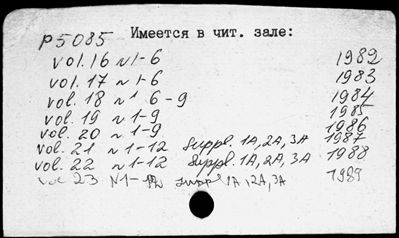 P5085 Имеется в чит. зале:
vol. 16 n 1-6 1982
vol. 17 n 1-6 1983
vol. 18 n 1 6-9 1984
vol. 19 n 1-9 1985
vol. 20 n 1-9 1986
vol. 21 n 1-12 Suppl. 1A, 2A, 3A 1987
vol. 22 n 1-12 Suppl. 1A, 2A, 3A 1988
vol 23 N1-12 suppl 1A, 2A, 3A 1989